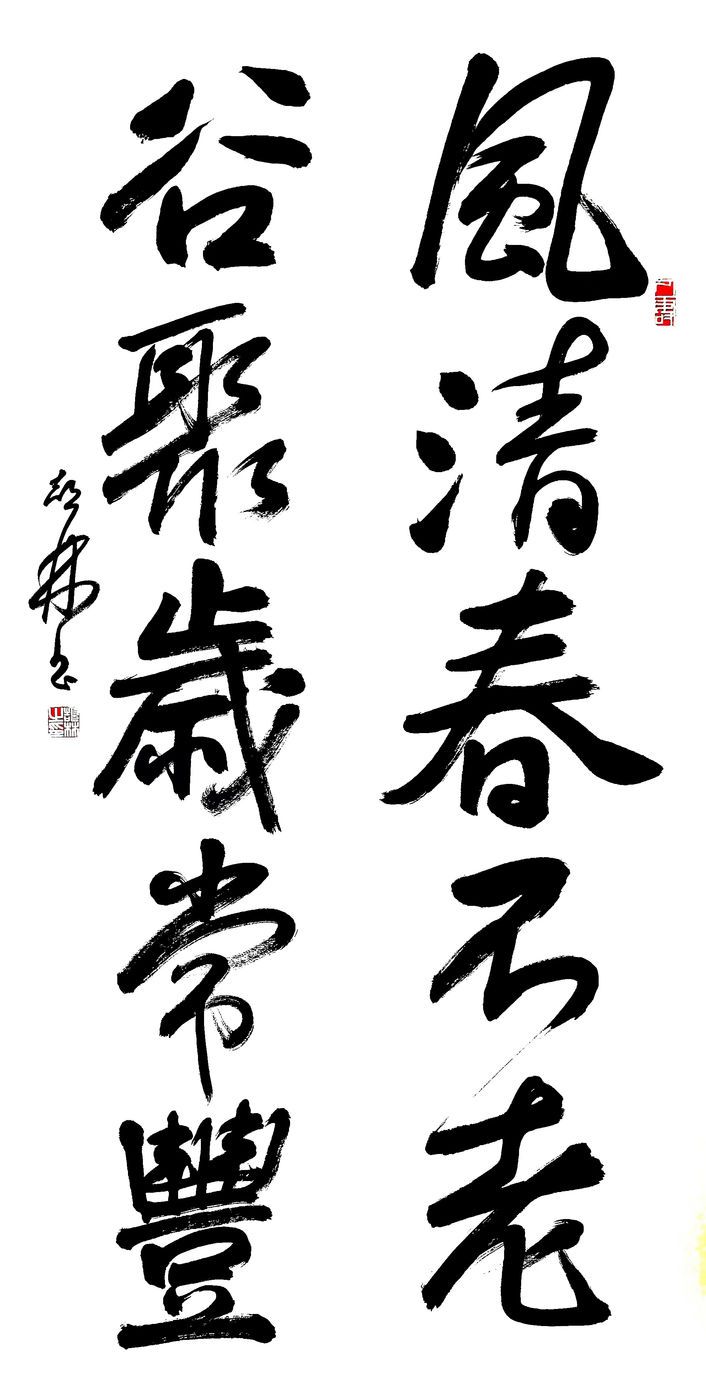 風清春不老
谷聚歲常豐